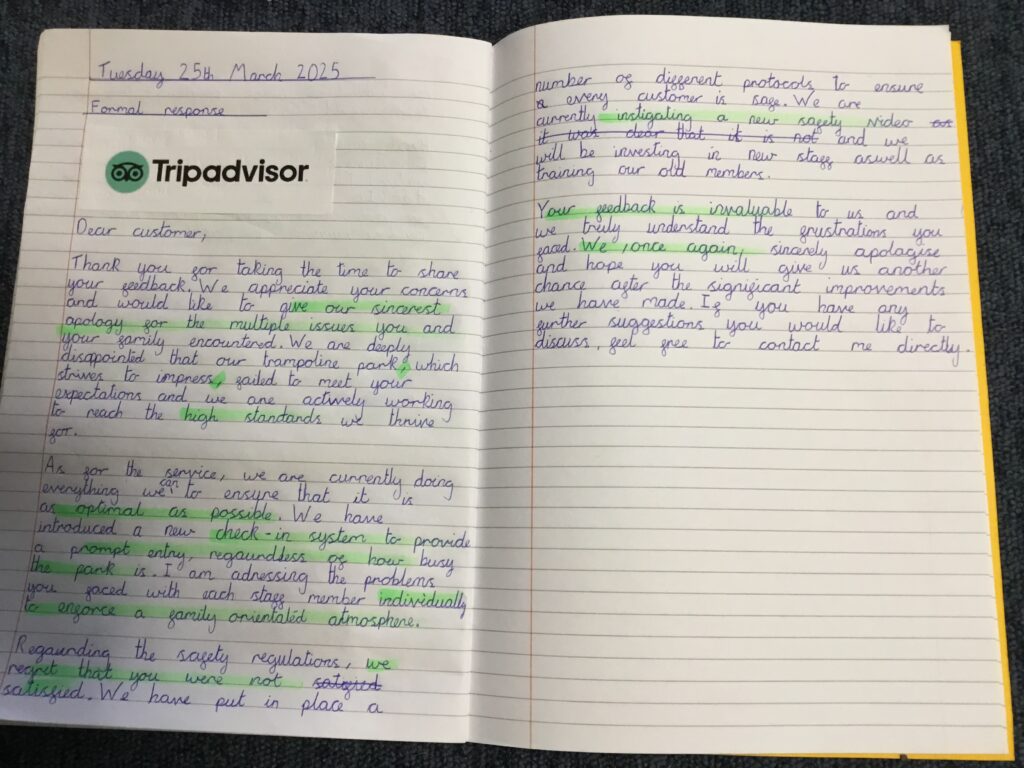 Tuesday 25th March 2025
Formal response
Tripadvisor
Dear customer,
Thank you for taking the time to share
your feedback. We appreciate your concerns
and would like to give our sincerest
apology for the multiple issues you and
your family encountered. We are deeply
disapointed that our trampoline park, which
strives to impress, failed to meet your
expectations and we are actively working
to reach the high standards we thrive
for.
As for the service, we are currently doing
everything we can to ensure that it is
as optimal as possible. We have
introduced a new check-in system to provide
a prompt entry, regaurdless of how busy
the park is. I am adressing the problems
you faced with each staff member individually
to enforce a family orientated atmosphere.
Regaurding the safety regulations, we
regret that you were not satisfied
satisfied. We have put in place a
number of different protocols to ensure
a every customer is safe. We are
currently instigating a new safety video as
it was clear that it is not and we
will be investing in new staff aswell as
training our old members.
Your feedback is invaluable to us and
we truly understand the frustrations you
faced. We, once again, sincerely apologise
and hope you will give us another
chance after the significant improvements
we have made. If you have any
further suggestions you would like to
discuss, feel free to contact me directly.